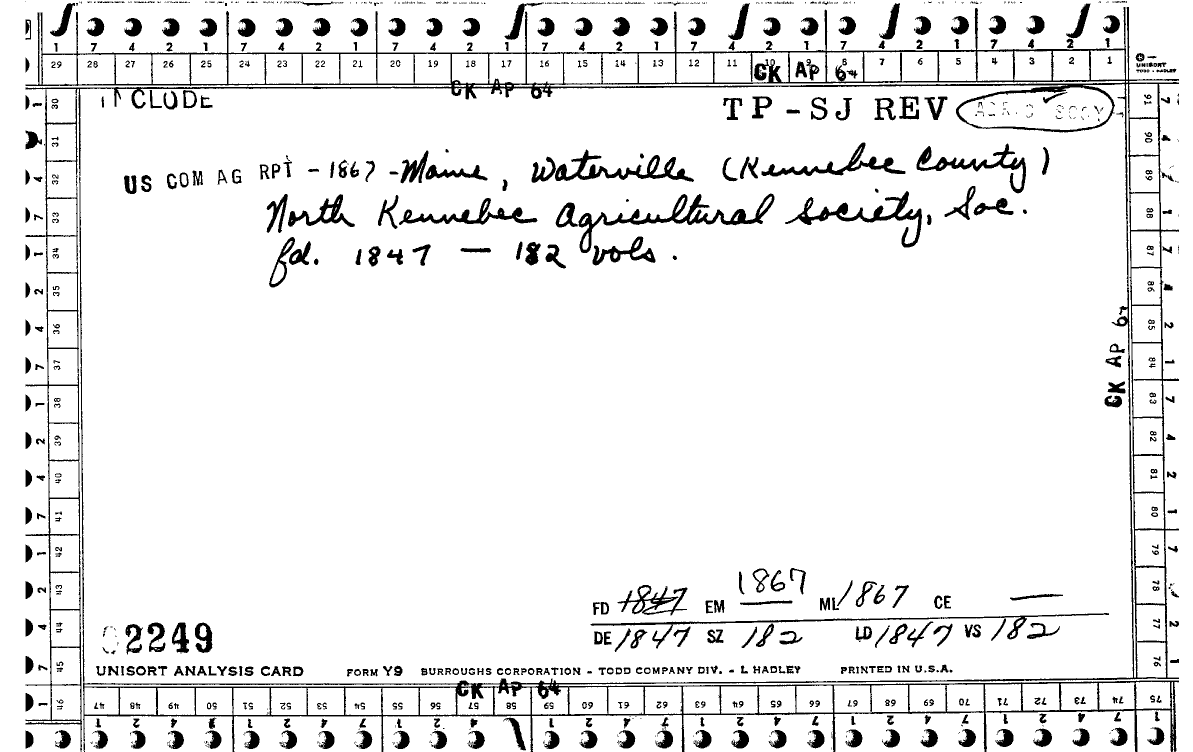 1 7 4 2 1 7 4 2 1 7 4 2 1 7 4 2 1 7 4 2 1 7 4 2 1
29 28 27 26 25 24 23 22 21 20 19 18 17 16 15 14 13 12 11 10 9 8 7 6 5 4 3 2 1
UNISORT
TODD - HADLEY
CK AP 64
CK AP 64
INCLUDE
TP-SJ REV
US COM AG RPT - 1867 - Maine, Waterville (Kennebec County)
North Kennebec Agricultural Society, Soc.
fd. 1847 — 182 vols.
30 31 32 33 34 35 36 37 38 39 40 41 42 43 44 45 46
91 90 89 88 87 86 85 84 83 82 81 80 79 78 77 76
CK AP 64
FD 1847 EM 1867 ML 1867 CE —
DE 1847 SZ 182 LD 1847 VS 182
02249
UNISORT ANALYSIS CARD FORM Y9 BURROUGHS CORPORATION - TODD COMPANY DIV. - L HADLEY PRINTED IN U.S.A.
CK AP 64
47 48 49 50 51 52 53 54 55 56 57 58 59 60 61 62 63 64 65 66 67 68 69 70 71 72 73 74 75